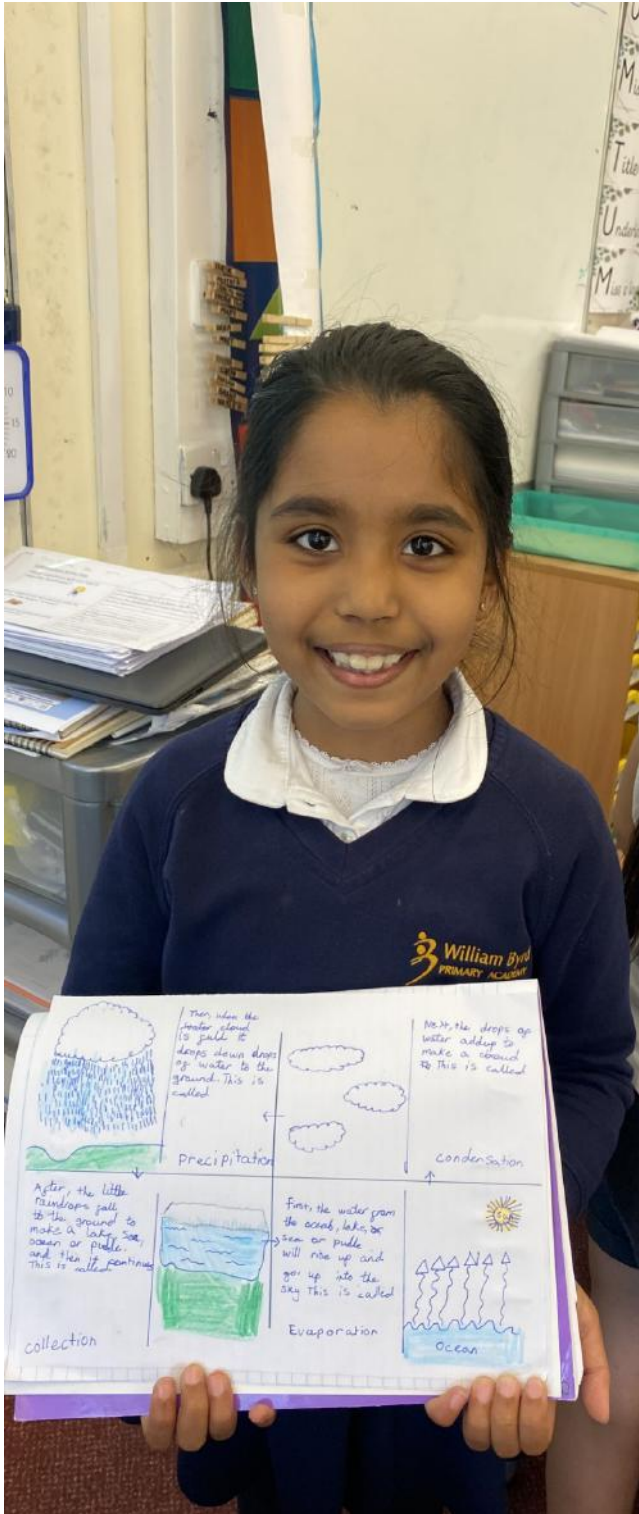 M
Title
U
M
10
15
20
William Byrd
PRIMARY ACADEMY
Then when the
water cloud
is full it
drops down drops
of water to the
ground. This is
called
Precipitation
Next, the drops of
water add up to
make a cloud
This is called
condensation
After, the little
raindrops fall
to the ground to
make a lake, sea,
ocean or pudle.
and then it continues
This is called
collection
First, the water from
the ocean, lake, or
sea or pudle
will rise up and
go up into the
sky This is called
Evaporation
ocean